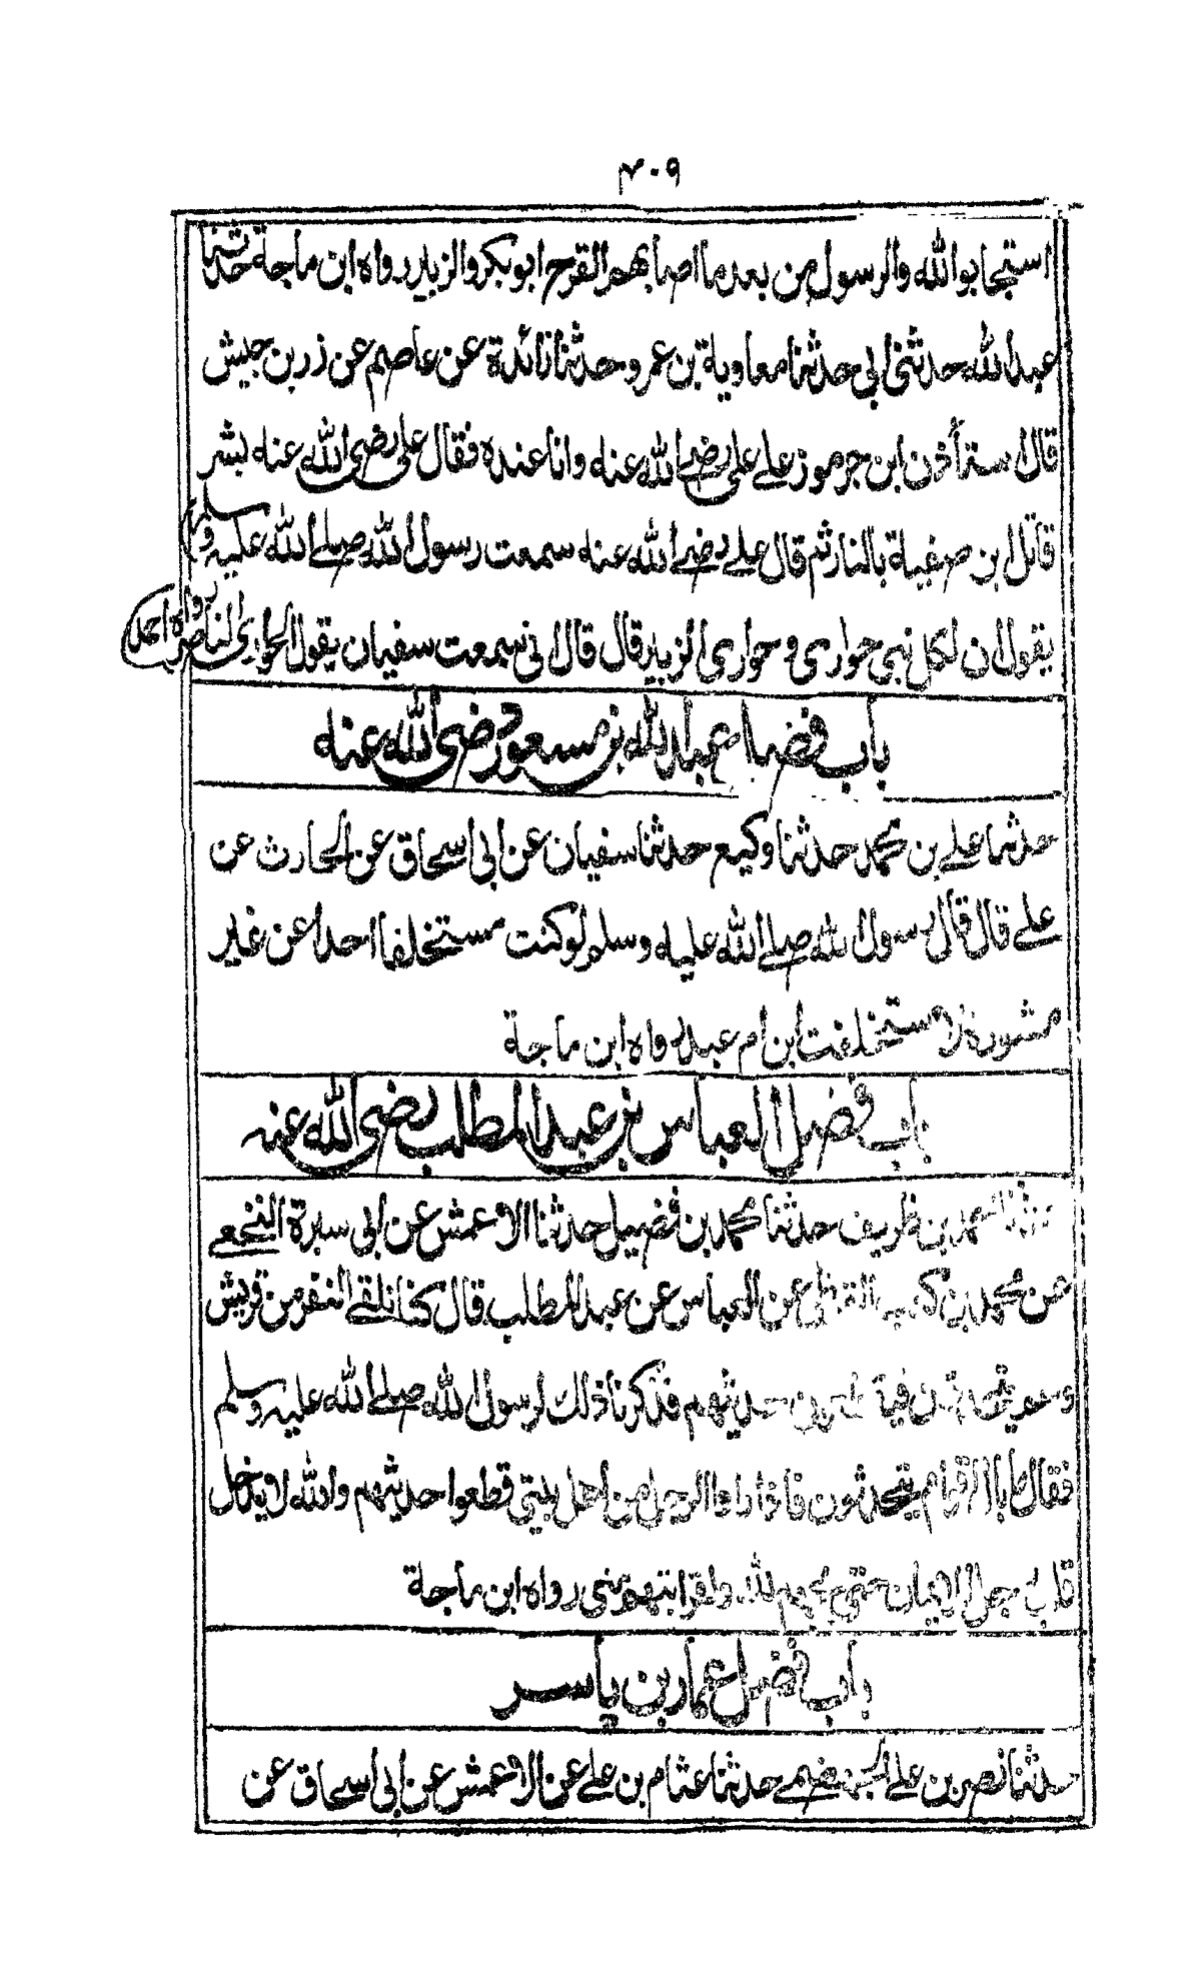 ٣٠٩
استجابوا لله والرسول من بعد ما اصابهم القرح ابو بكر والزبير رواه ابن ماجة حدثنا
عبد الله حدثنى ابى حدثنا معاوية بن عمرو حدثنا زائدة عن عاصم عن زر بن حبيش
قال استأذن ابن جرموز على على رضى الله عنه وانا عنده فقال على رضى الله عنه بشر
قاتل ابن صفية بالنار ثم قال على رضى الله عنه سمعت رسول الله صلى الله عليه وسلم
يقول ان لكل نبى حوارى وحوارى الزبير قال قال انى سمعت سفيان يقول الحوارى الناصر رواه احمد
باب فضل عبد الله بن مسعود رضى الله عنه
حدثنا على بن محمد حدثنا وكيع حدثنا سفيان عن ابى اسحاق عن الحارث عن
على قال قال رسول الله صلى الله عليه وسلم لو كنت مستخلفا احدا عن غير
مشورة لاستخلفت ابن ام عبد رواه ابن ماجة
باب فضل العباس بن عبد المطلب رضى الله عنه
حدثنا محمد بن طريف حدثنا محمد بن فضيل حدثنا الاعمش عن ابى سبرة النخعى
عن محمد بن كعب القرظى عن العباس عن عبد المطلب قال كنا نلقى النفر من قريش
وهم يتحدثون فيقطعون حديثهم فذكرنا ذلك لرسول الله صلى الله عليه وسلم
فقال ما بال اقوام يتحدثون فاذا راوا الرجل من اهل بيتى قطعوا حديثهم والله لا يدخل
قلب رجل الايمان حتى يحبهم لله ولقرابتهم منى رواه ابن ماجة
باب فضل عمار بن ياسر
حدثنا نصر بن على الجهضمى حدثنا عثام بن على عن الاعمش عن ابى اسحاق عن